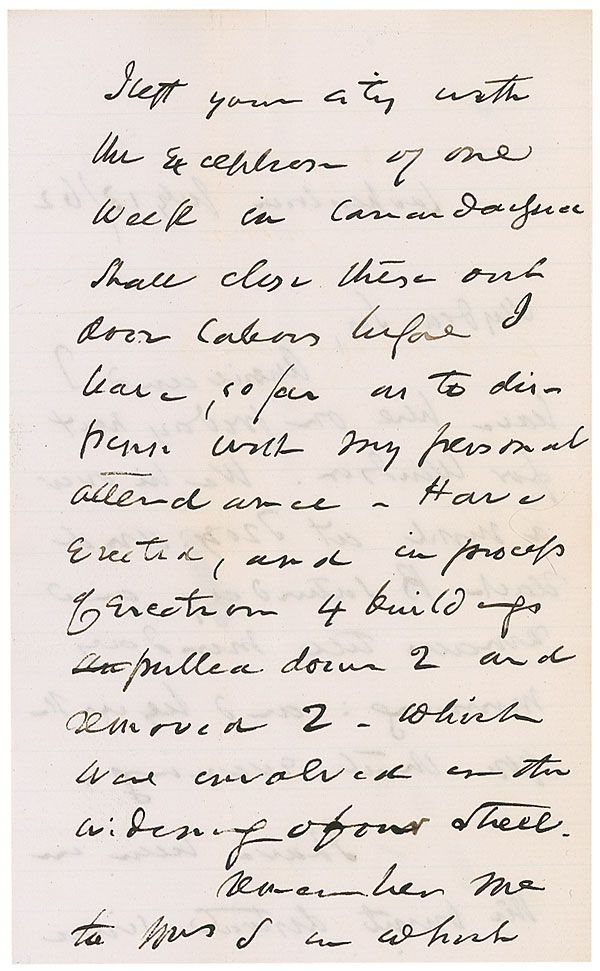 I left your city with
the exception of one
week in Canandaigua
Shall close these out
door labors before I
leave, so far as to dis-
pense with my personal
attendance - Have
Erected, and in process
of Erection 4 buildings
pulled down 2 and
removed 2 - which
were envolved in the
widening of our Street.
Remember me
to Mrs S in which